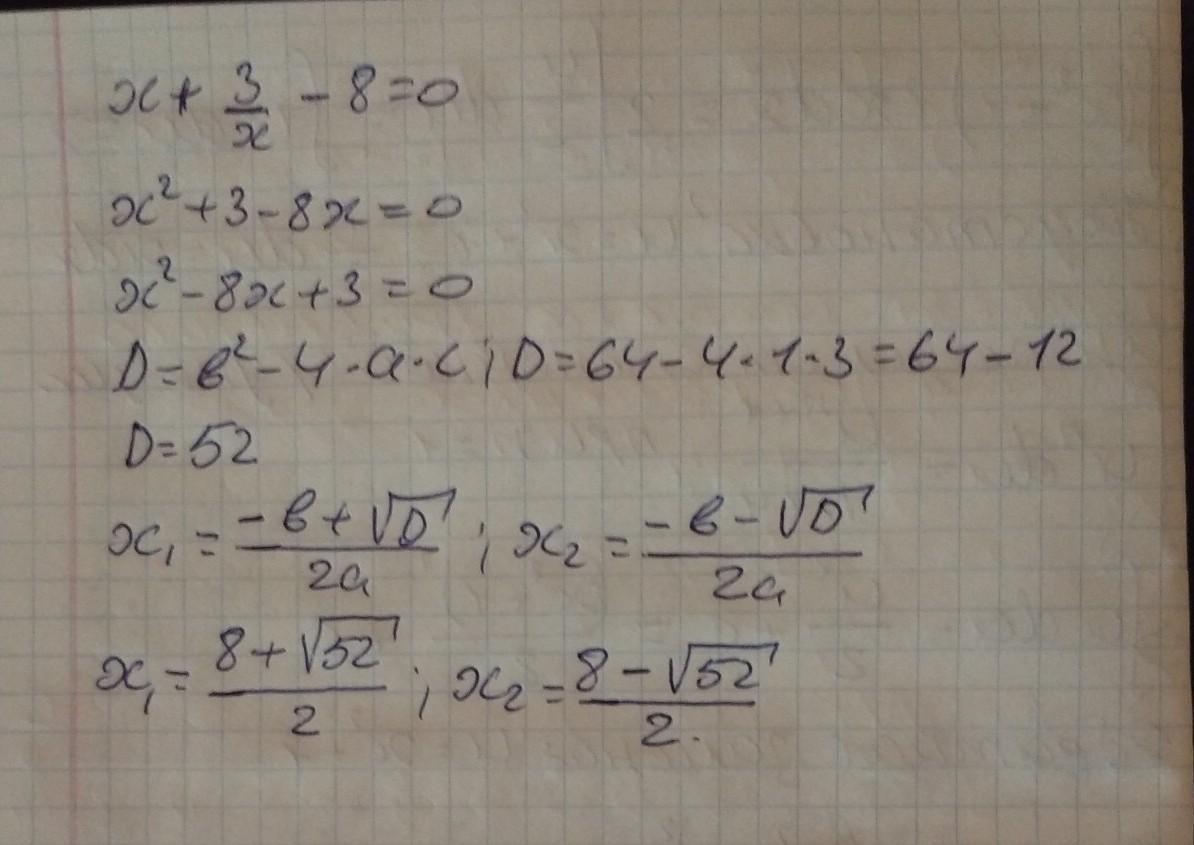 x + 3/x - 8 = 0
x² + 3 - 8x = 0
x² - 8x + 3 = 0
D = в² - 4 · a · c ; D = 64 - 4 · 1 · 3 = 64 - 12
D = 52
x₁ = (-в + √D)/2a ; x₂ = (-в - √D)/2a
x₁ = (8 + √52)/2 ; x₂ = (8 - √52)/2.